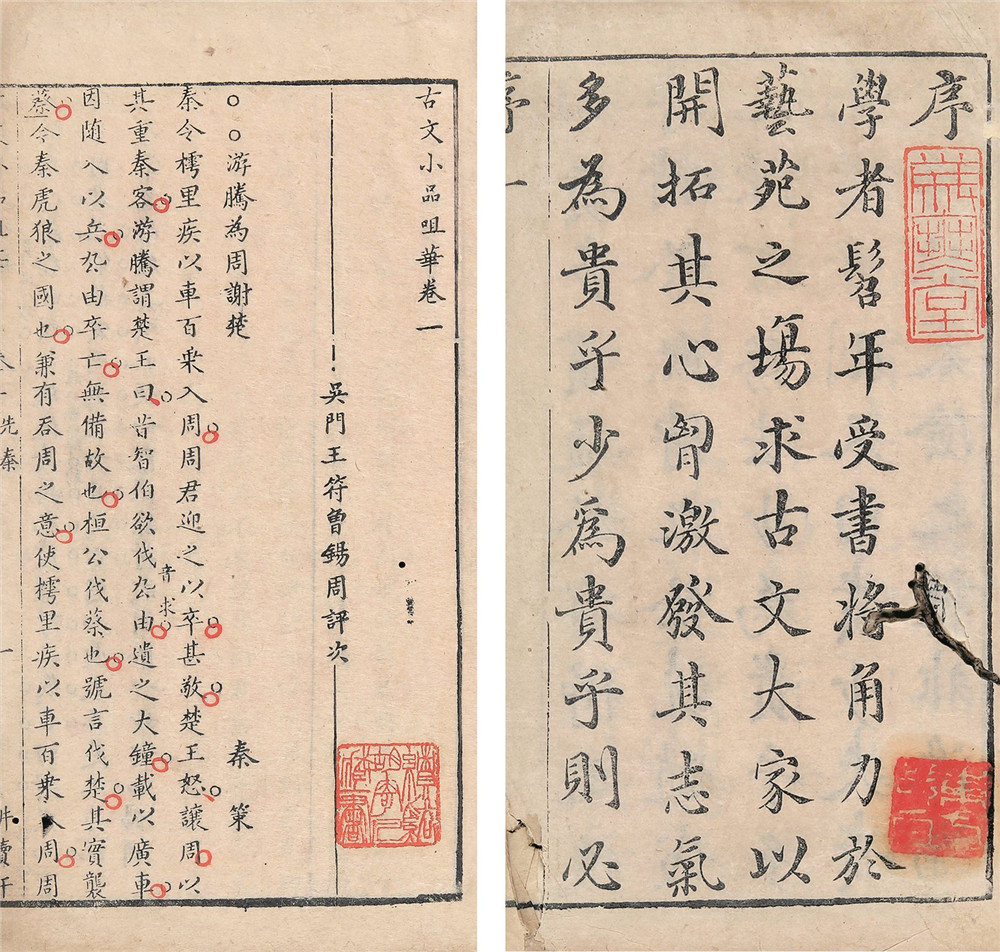 序
學者髫年受書將角力於
藝苑之場求古文大家以
開拓其心胷激發其志氣
多為貴乎少爲貴乎則必
序
一
古文小品咀華卷一
吳門王符曾錫周評次
游騰為周謝楚
秦策
秦令樗里疾以車百乗入周周君迎之以卒甚敬楚王怒讓周以
其重秦客游騰謂楚王曰昔智伯欲伐厹由遺之大鐘載以廣車
音求
因隨入以兵厹由卒亡無備故也桓公伐蔡也號言伐楚其實襲
蔡今秦虎狼之國也兼有吞周之意使樗里疾以車百乗入周周
卷一先秦
一